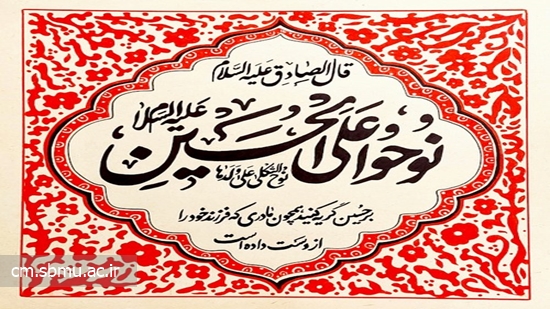 قال الصادق علیه السلام
نوحوا علی الحسین علیه السلام
نوح الثکلی علی ولدها
بر حسین گریه کنید همچون مادری که فرزند خود را
از دست داده است
cm.sbmu.ac.ir